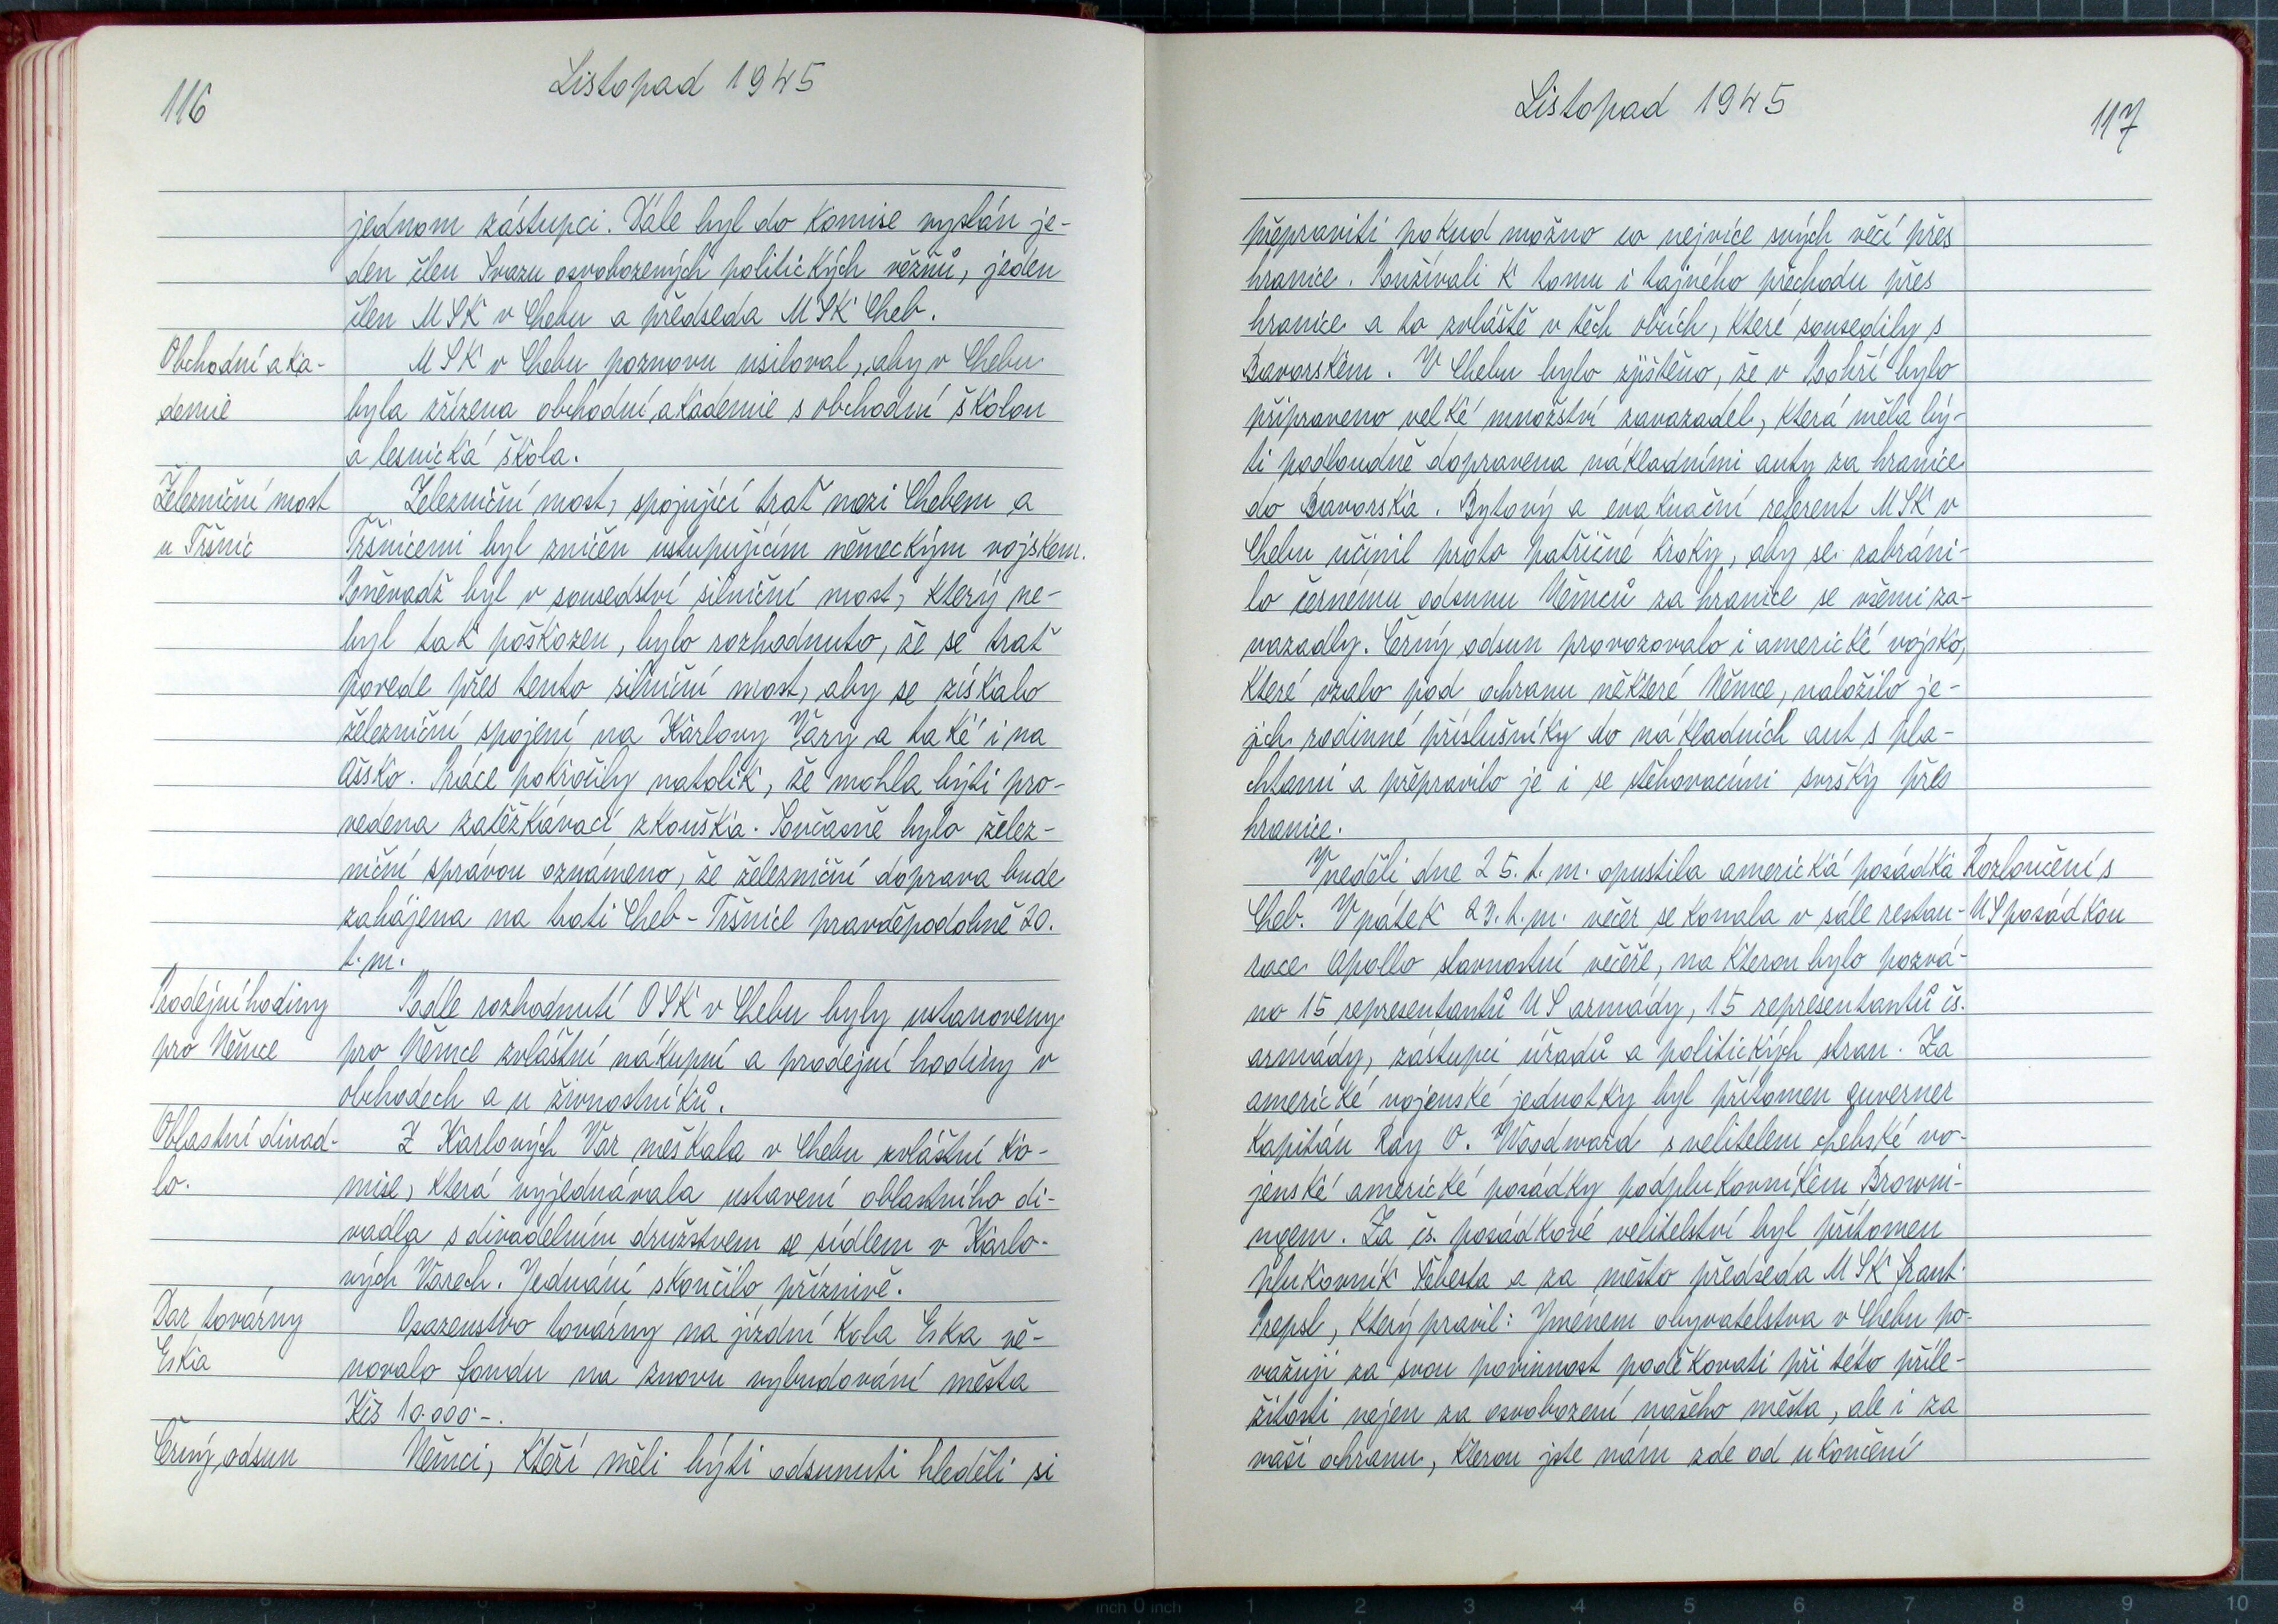 116
Listopad 1945
jednom zástupci. Dále byl do komise vyslán je-
den člen Svazu osvobozených politických vězňů, jeden
člen MSK v Chebu a předseda MSK Cheb.
Obchodní aka-
demie
MSK v Chebu poznovu usiloval, aby v Chebu
byla zřízena obchodní akademie s obchodní školou
a lesnická škola.
Železniční most
u Tršnic
Železniční most, spojující trať mezi Chebem a
Tršnicemi byl zničen ustupujícím německým vojskem.
Poněvadž byl v sousedství silniční most, který ne-
byl tak poškozen, bylo rozhodnuto, že se trať
povede přes tento silniční most, aby se získalo
železniční spojení na Karlovy Vary a také i na
Ašsko. Práce pokročily natolik, že mohla býti pro-
vedena zatěžkávací zkouška. Současně bylo želez-
niční správou oznámeno, že železniční doprava bude
zahájena na trati Cheb - Tršnice pravděpodobně 20.
t.m.
Prodejní hodiny
pro Němce
Podle rozhodnutí OSK v Chebu byly ustanoveny
pro Němce zvláštní nákupní a prodejní hodiny v
obchodech a u živnostníků.
Oblastní divad-
lo.
Z Karlových Var meškala v Chebu zvláštní ko-
mise, která vyjednávala ustavení oblastního di-
vadla s divadelním družstvem se sídlem v Karlo-
vých Varech. Jednání skončilo příznivě.
Dar továrny
Eska
Osazenstvo továrny na jízdní kola Eska vě-
novalo fondu na znovu vybudování města
Kčs 10.000-.
Černý odsun
Němci, kteří měli býti odsunuti hleděli si
Listopad 1945
117
přepraviti pokud možno co nejvíce svých věcí přes
hranice. Používali k tomu i tajného přechodu přes
hranice a to zvláště v těch obcích, které sousedily s
Bavorskem. V Chebu bylo zjištěno, že v Poohří bylo
připraveno velké množství zavazadel, která měla bý-
ti podloudně dopravena nákladními auty za hranice
do Bavorska. Bytový a evakuační referent MSK v
Chebu učinil proto patřičné kroky, aby se zabráni-
lo černému odsunu Němců za hranice se všemi za-
vazadly. Černý odsun provozovalo i americké vojsko,
které vzalo pod ochranu některé Němce, naložilo je-
jich rodinné příslušníky do nákladních aut s pla-
chtami a přepravilo je i se stěhovacími svršky přes
hranice.
V neděli dne 25. t.m. opustila americká posádka
Cheb. V pátek 23. t.m. večer se konala v sále restau-
race Apollo slavnostní večeře, na kterou bylo pozvá-
no 15 representantů US armády, 15 representantů čs.
armády, zástupci úřadů a politických stran. Za
americké vojenské jednotky byl přítomen guverner
kapitán Ray O. Woodward s velitelem chebské vo-
jenské americké posádky podplukovníkem Browni-
ngem. Za čs. posádkové velitelství byl přítomen
plukovník Šebesta a za město předseda MSK Frant.
Prepsl, který pravil: Jménem obyvatelstva v Chebu po-
važuji za svou povinnost poděkovati při této příle-
žitosti nejen za osvobození našeho města, ale i za
vaši ochranu, kterou jste nám zde od ukončení
Rozloučení s
US posádkou
inch 0 inch
1 2 3 4 5 6 7 8 9 10